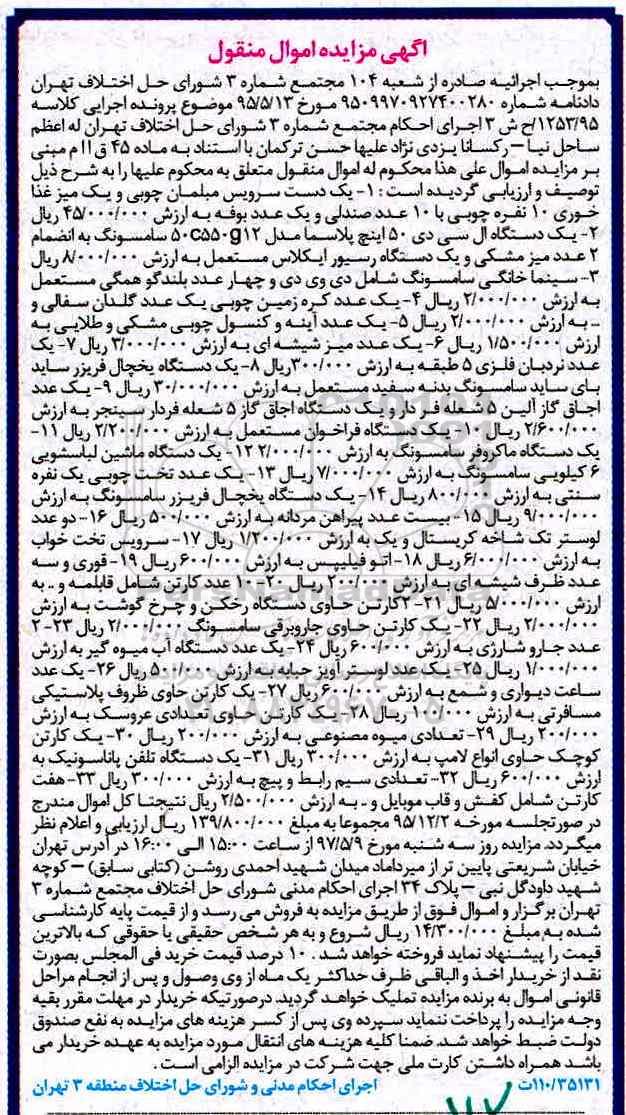 آگهی مزایده اموال منقول
بموجب اجرائیه صادره از شعبه ۱۰۴ مجتمع شماره ۳ شورای حل اختلاف تهران
دادنامه شماره ۹۵۰۹۹۷۰۹۲۷۴۰۰۲۸۰ مورخ ۹۵/۵/۱۳ موضوع پرونده اجرایی کلاسه
۱۲۵۳/۹۵/ح ش ۳ اجرای احکام مجتمع شماره ۳ شورای حل اختلاف تهران له اعظم
ساحل نیا – رکسانا یزدی نژاد علیها حسن ترکمان با استناد به ماده ۴۵ ق ا ا م مبنی
بر مزایده اموال علی هذا محکوم له اموال منقول متعلق به محکوم علیها را به شرح ذیل
توصیف و ارزیابی گردیده است : ۱- یک دست سرویس مبلمان چوبی و یک میز غذا
خوری ۱۰ نفره چوبی با ۱۰ عدد صندلی و یک عدد بوفه به ارزش ۴۵/۰۰۰/۰۰۰ ریال
۲- یک دستگاه ال سی دی ۵۰ اینچ پلاسما مدل ۵۰c۵۵۰g۱۲ سامسونگ به انضمام
۲ عدد میز مشکی و یک دستگاه رسیور ایکلاس مستعمل به ارزش ۸/۰۰۰/۰۰۰ ریال
۳- سینما خانگی سامسونگ شامل دی وی دی و چهار عدد بلندگو همگی مستعمل
به ارزش ۲/۰۰۰/۰۰۰ ریال ۴- یک عدد کره زمین چوبی یک عدد گلدان سفالی و
... به ارزش ۲/۰۰۰/۰۰۰ ریال ۵- یک عدد آینه و کنسول چوبی مشکی و طلایی به
ارزش ۱/۵۰۰/۰۰۰ ریال ۶- یک عدد میز شیشه ای به ارزش ۳/۰۰۰/۰۰۰ ریال ۷- یک
عدد نردبان فلزی ۵ طبقه به ارزش ۳۰۰/۰۰۰ریال ۸- یک دستگاه یخچال فریزر ساید
بای ساید سامسونگ بدنه سفید مستعمل به ارزش ۳۰/۰۰۰/۰۰۰ ریال ۹- یک عدد
اجاق گاز آلین ۵ شعله فر دار و یک دستگاه اجاق گاز ۵ شعله فردار سینجر به ارزش
۲/۶۰۰/۰۰۰ ریال ۱۰- یک دستگاه فراخوان مستعمل به ارزش ۲/۲۰۰/۰۰۰ ریال ۱۱-
یک دستگاه ماکروفر سامسونگ به ارزش ۲/۰۰۰/۰۰۰ ۱۲- یک دستگاه ماشین لباسشویی
۶ کیلویی سامسونگ به ارزش ۷/۰۰۰/۰۰۰ ریال ۱۳- یک عدد تخت چوبی یک نفره
سنتی به ارزش ۸۰۰/۰۰۰ ریال ۱۴- یک دستگاه یخچال فریزر سامسونگ به ارزش
۹/۰۰۰/۰۰۰ ریال ۱۵- بیست عدد پیراهن مردانه به ارزش ۵۰۰/۰۰۰ ریال ۱۶- دو عدد
لوستر تک شاخه کریستال و یک به ارزش ۱/۲۰۰/۰۰۰ ریال ۱۷- سرویس تخت خواب
به ارزش ۶/۰۰۰/۰۰۰ ریال ۱۸- اتو فیلیپس به ارزش ۶۰۰/۰۰۰ ریال ۱۹- قوری و سه
عدد ظرف شیشه ای به ارزش ۲۰۰/۰۰۰ ریال ۲۰- ۱۰ عدد کارتن شامل قابلمه و .. به
ارزش ۵/۰۰۰/۰۰۰ ریال ۲۱- ۲کارتن حاوی دستگاه رخکن و چرخ گوشت به ارزش
۲/۰۰۰/۰۰۰ ریال ۲۲- یک کارتن حاوی جاروبرقی سامسونگ ۲/۰۰۰/۰۰۰ ریال ۲۳- ۲
عدد جارو شارژی به ارزش ۶۰۰/۰۰۰ ریال ۲۴- یک عدد دستگاه آب میوه گیر به ارزش
۱/۰۰۰/۰۰۰ ریال ۲۵- یک عدد لوستر آویز حبابه به ارزش ۵۰۰/۰۰۰ ریال ۲۶- یک عدد
ساعت دیواری و شمع به ارزش ۶۰۰/۰۰۰ ریال ۲۷- یک کارتن حاوی ظروف پلاستیکی
مسافرتی به ارزش ۱۰۰/۰۰۰ ریال ۲۸- یک کارتن حاوی تعدادی عروسک به ارزش
۲۰۰/۰۰۰ ریال ۲۹- تعدادی میوه مصنوعی به ارزش ۲۰۰/۰۰۰ ریال ۳۰- یک کارتن
کوچک حاوی انواع لامپ به ارزش ۳۰۰/۰۰۰ ریال ۳۱- یک دستگاه تلفن پاناسونیک به
ارزش ۶۰۰/۰۰۰ ریال ۳۲- تعدادی سیم رابط و پیچ به ارزش ۳۰۰/۰۰۰ ریال ۳۳- هفت
کارتن شامل کفش و قاب موبایل و .. به ارزش ۲/۵۰۰/۰۰۰ ریال نتیجتا کل اموال مندرج
در صورتجلسه مورخه ۹۵/۱۲/۲ مجموعا به مبلغ ۱۳۹/۸۰۰/۰۰۰ ریال ارزیابی و اعلام نظر
میگردد. مزایده روز سه شنبه مورخ ۹۷/۵/۹ از ساعت ۱۵:۰۰ الی ۱۶:۰۰ در آدرس تهران
خیابان شریعتی پایین تر از میرداماد میدان شهید احمدی روشن (کتابی سابق) – کوچه
شهید داودگل نبی – پلاک ۳۴ اجرای احکام مدنی شورای حل اختلاف مجتمع شماره ۳
تهران برگزار و اموال فوق از طریق مزایده به فروش می رسد و از قیمت پایه کارشناسی
شده به مبلغ ۱۴/۳۰۰/۰۰۰ ریال شروع و به هر شخص حقیقی یا حقوقی که بالاترین
قیمت را پیشنهاد نماید فروخته خواهد شد . ۱۰ درصد قیمت خرید فی المجلس بصورت
نقد از خریدار اخذ و الباقی ظرف حداکثر یک ماه از وی وصول و پس از انجام مراحل
قانونی اموال به برنده مزایده تملیک خواهد گردید. درصورتیکه خریدار در مهلت مقرر بقیه
وجه مزایده را پرداخت ننماید سپرده وی پس از کسر هزینه های مزایده به نفع صندوق
دولت ضبط خواهد شد. ضمنا کلیه هزینه های انتقال مورد مزایده به عهده خریدار می
باشد همراه داشتن کارت ملی جهت شرکت در مزایده الزامی است .
۱۱۰/۳۵۱۳۱ت اجرای احکام مدنی و شورای حل اختلاف منطقه ۳ تهران